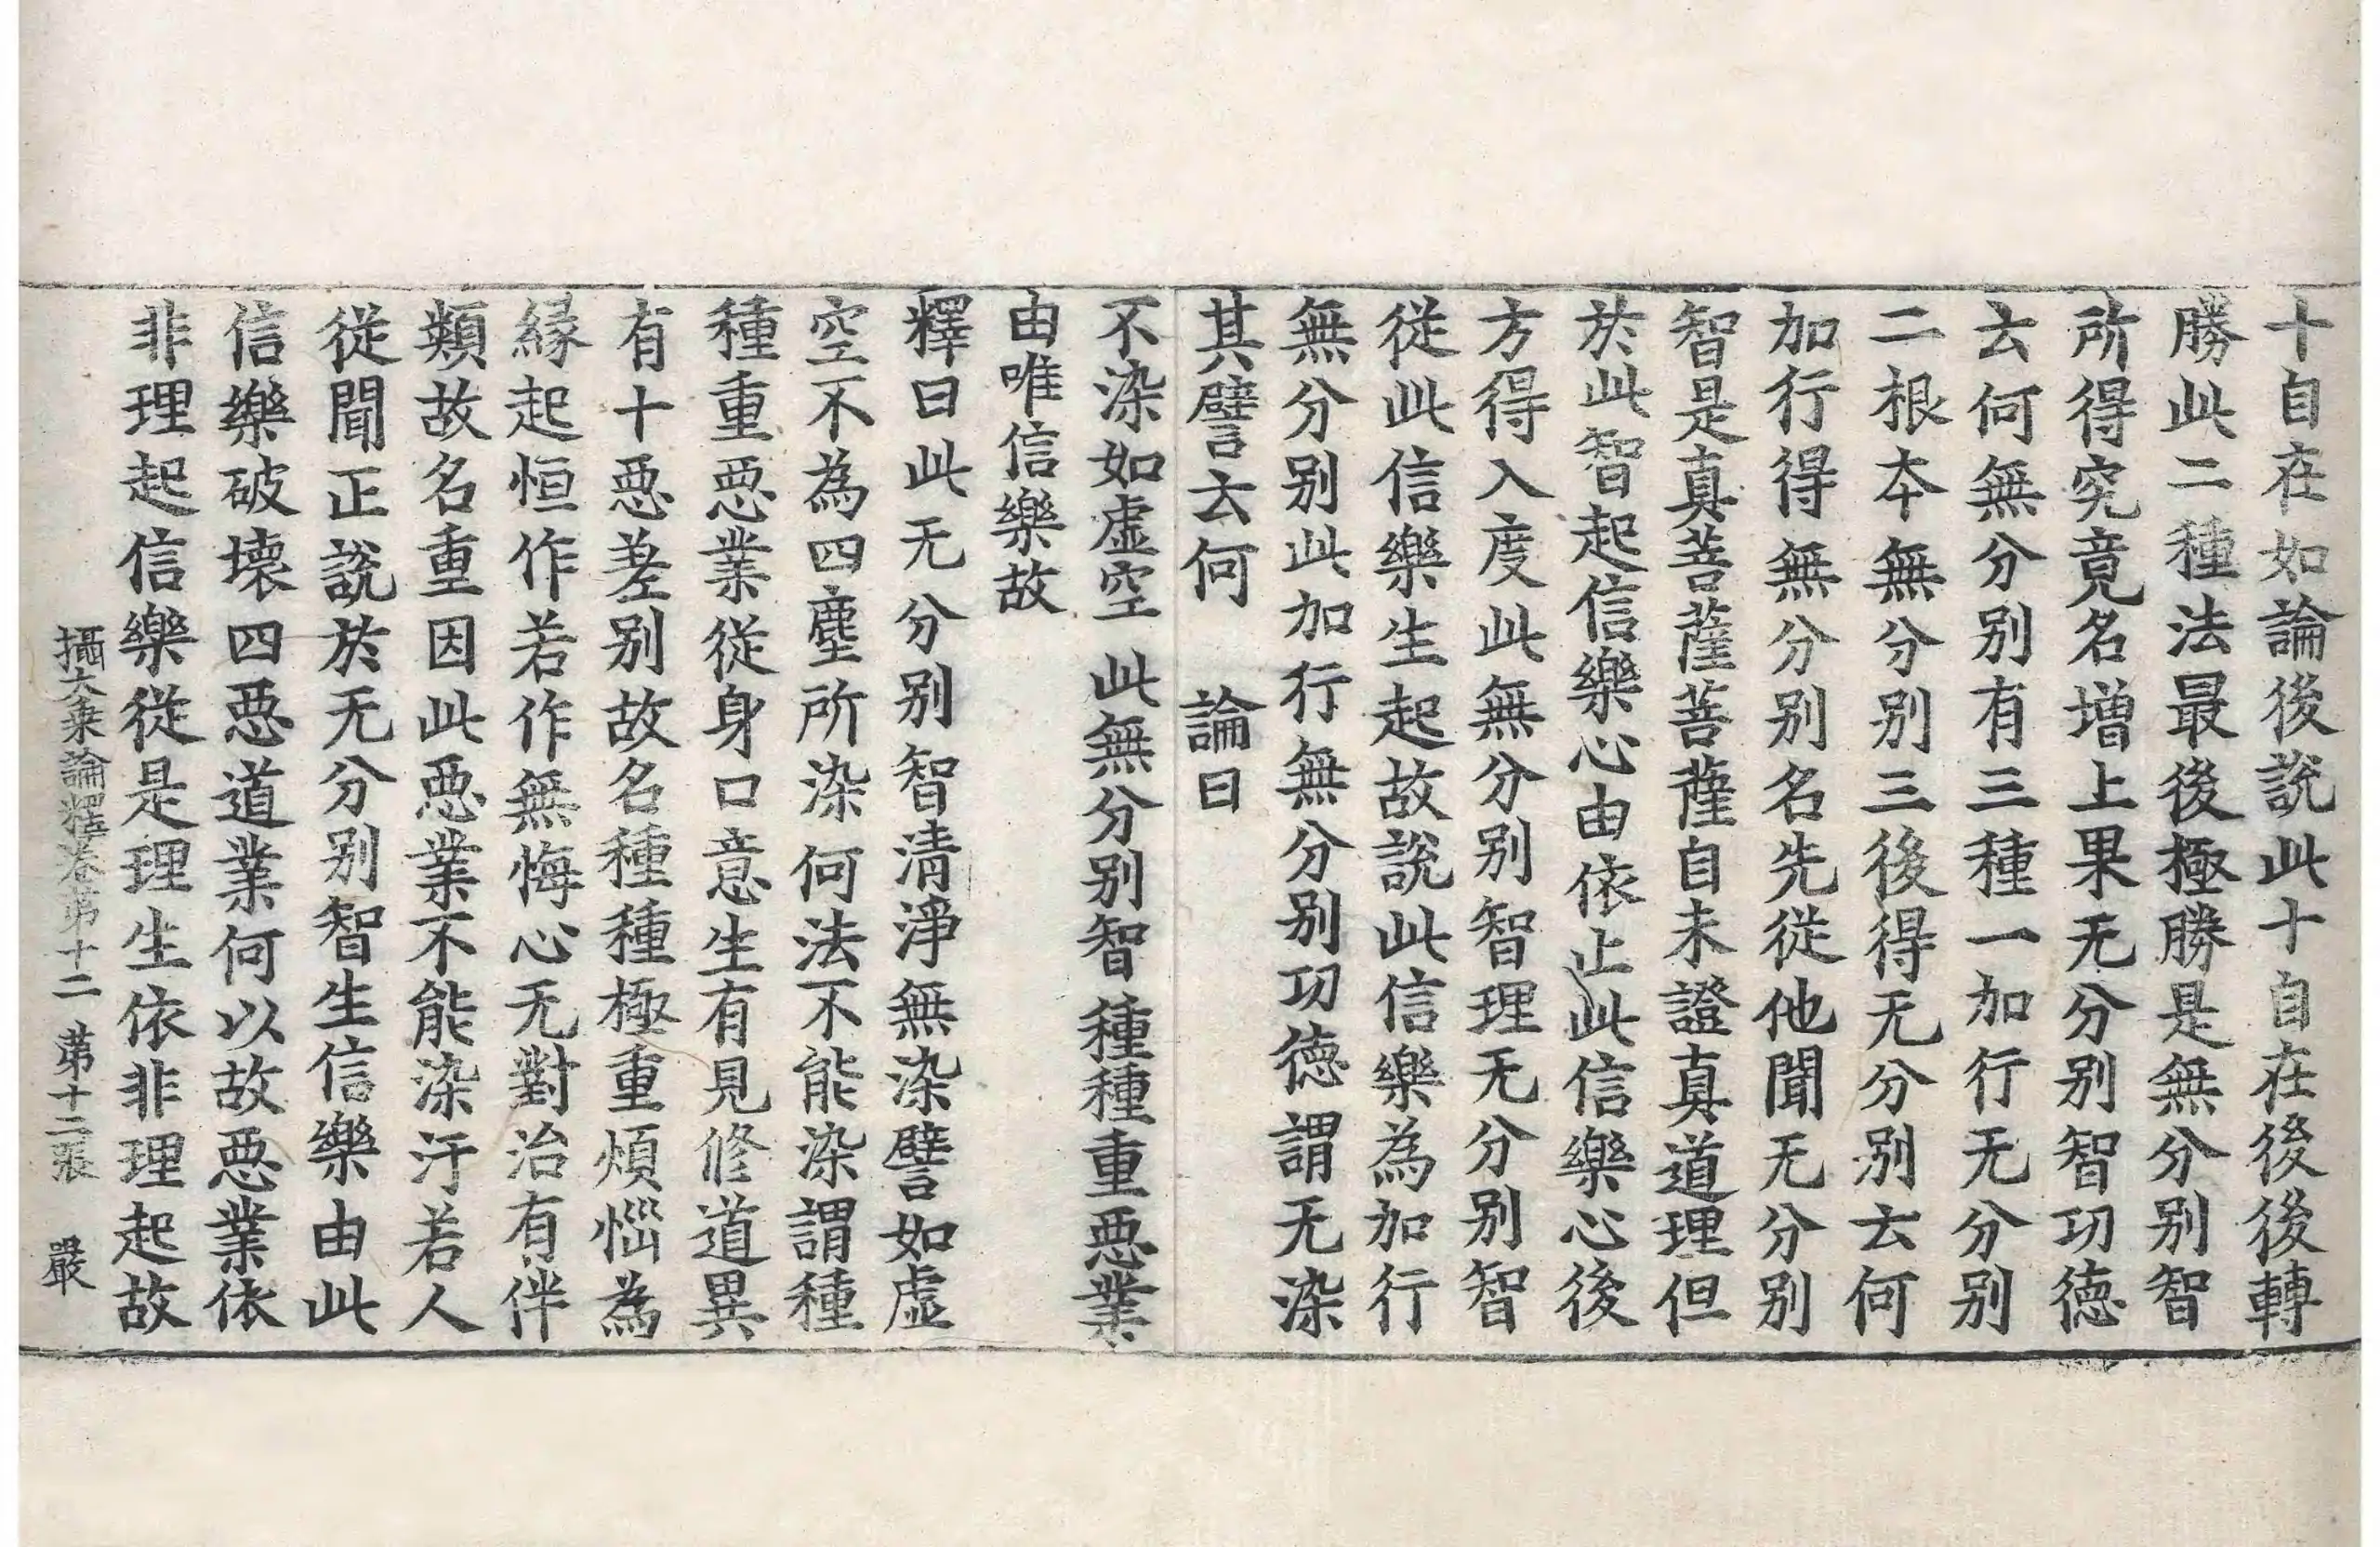 十自在如論後說此十自在後後轉
勝此二種法最後極勝是無分別智
所得究竟名增上果无分別智功德
云何無分別有三種一加行无分別
二根本無分別三後得无分別云何
加行得無分別名先從他聞无分別
智是真菩薩菩薩自未證真道理但
於此智起信樂心由依止此信樂心後
方得入度此無分別智理无分別智
從此信樂生起故說此信樂為加行
無分別此加行無分別功德謂无染
其譬云何　論曰
不染如虛空　此無分別智　種種重惡業
由唯信樂故
釋曰此无分別智清淨無染譬如虛
空不為四塵所染何法不能染謂種
種重惡業從身口意生有見修道異
有十惡差別故名種種極重煩惱為
緣起恒作若作無悔心无對治有伴
類故名重因此惡業不能染汙若人
從聞正說於无分別智生信樂由此
信樂破壞四惡道業何以故惡業依
非理起信樂從是理生依非理起故
攝大乘論釋卷第十二　第十二張　嚴